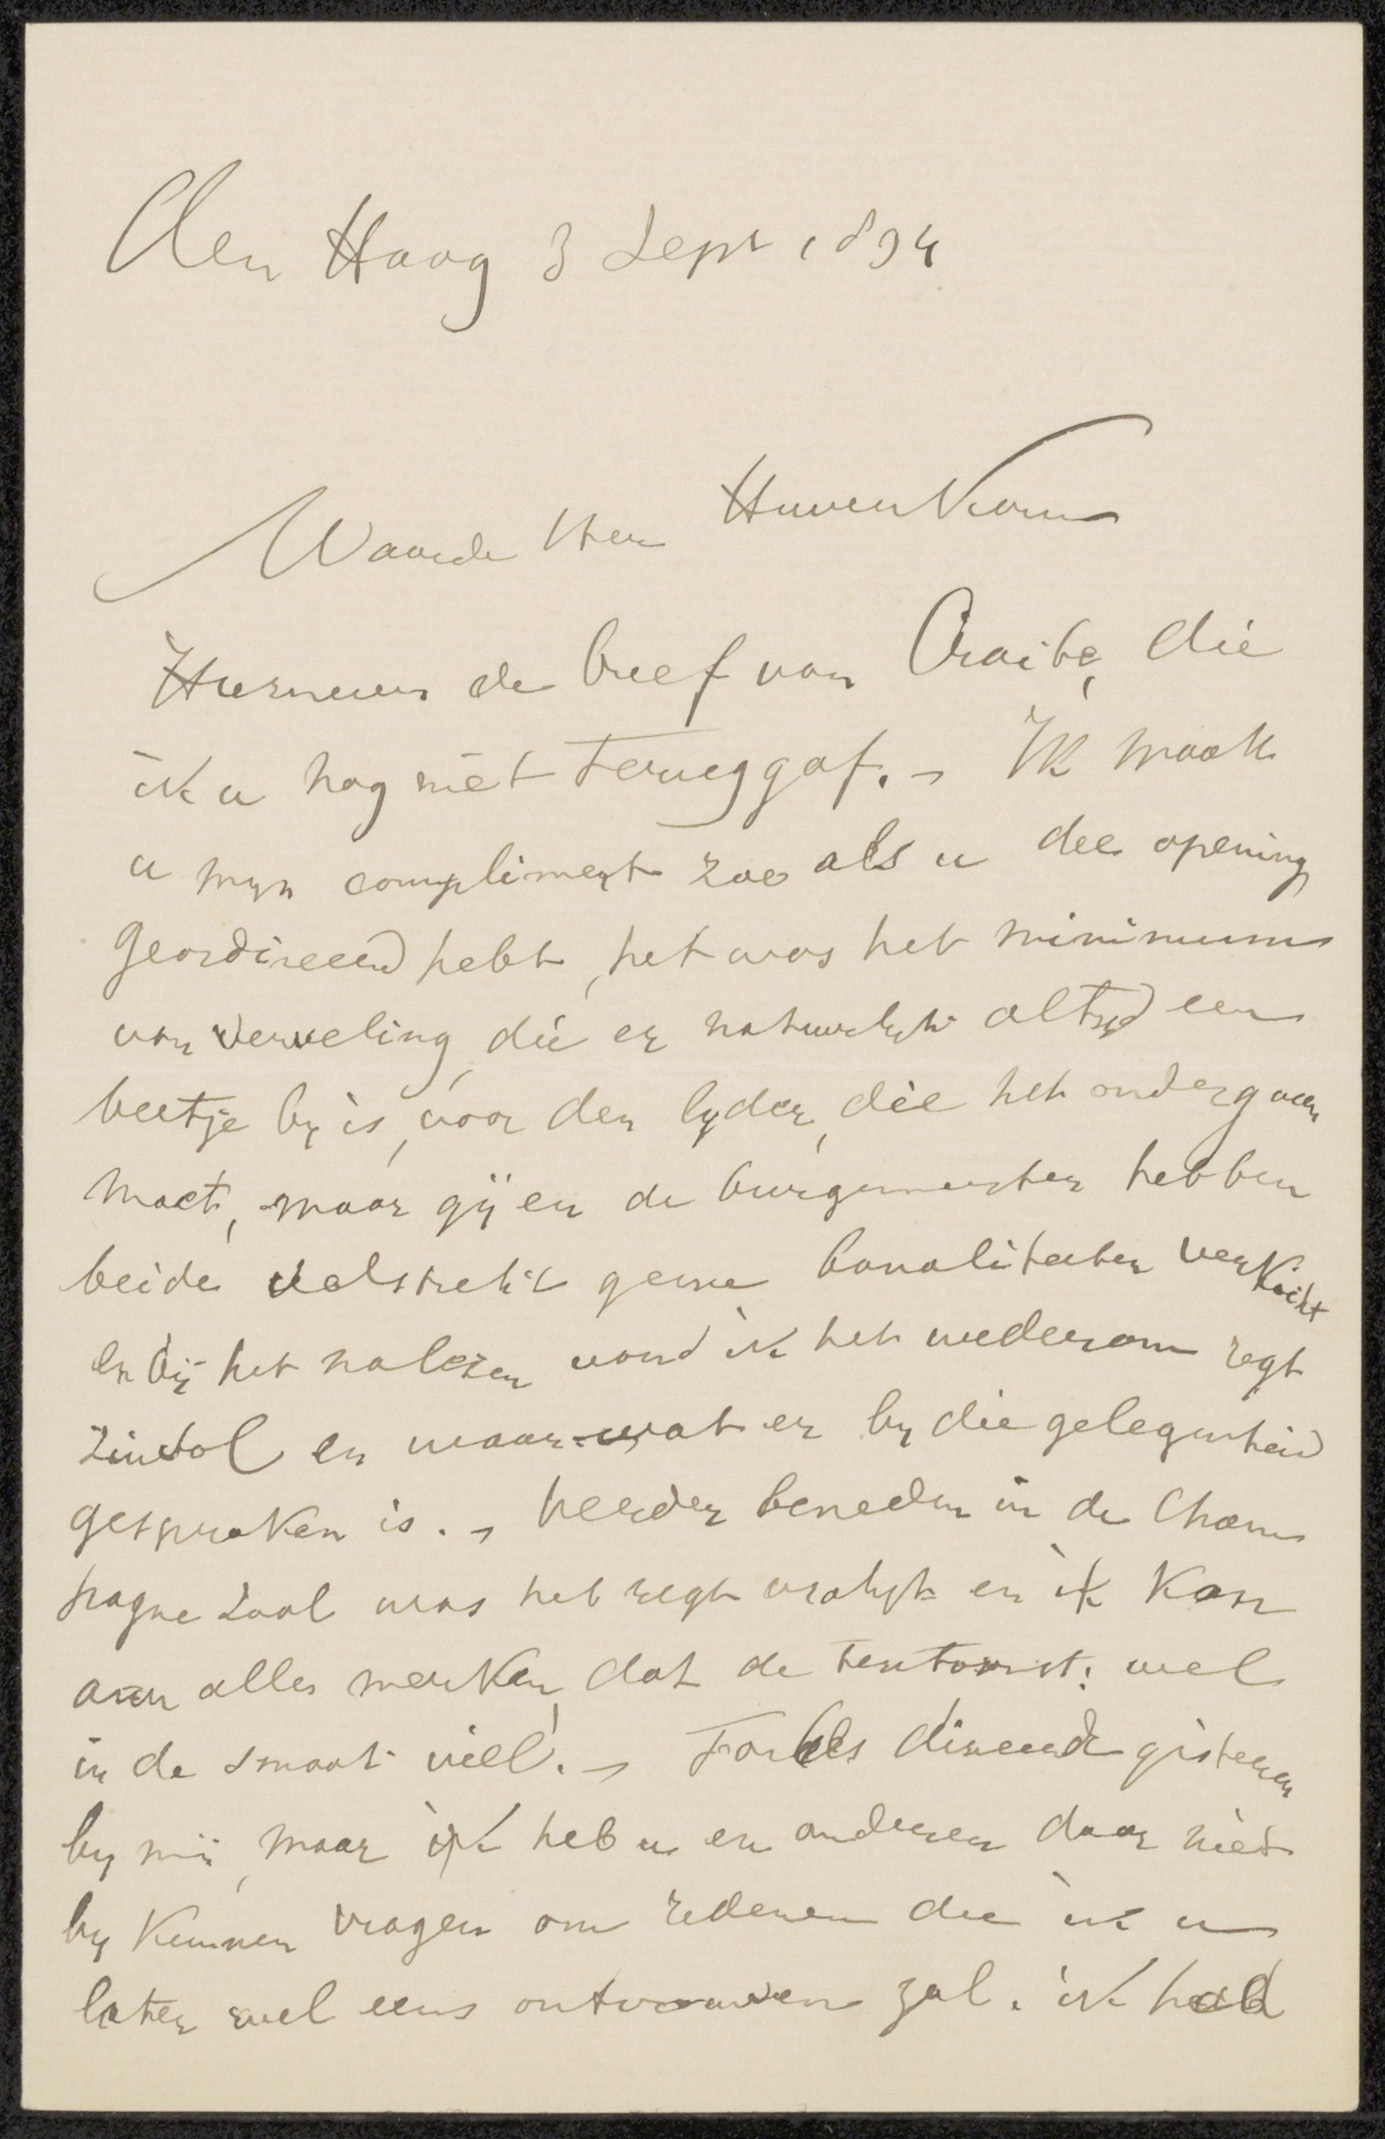 Den Haag 3 Sept 1894
Waarde Heer Huvenkamp
Hiernevens de brief van Craibe, die
ik u nog niet teruggaf. – Ik maak
u myn compliment zoo als u dee opening
geordineerd hebt, het was het minimum
van verveling, die er natuurlyk altyd een
beetje by is, voor den lyder, die het ondergaan
moet, maar gij en de burgemeester hebben
beide volstrekt geene banaliteiten verkocht
en bij het nalezen vond ik het wederom regt
zinvol en waar wat er by die gelegenheid
gesproken is. – beneden in de Cham
pagne zaal was het regt vrolyk en ik kon
aan alles merken, dat de tentoonst: wel
in de smaak viel. – Forbes dineerde gisteren
by mij, maar ik heb u en anderen daar niet
by kunnen vragen om redenen die ik u
later wel eens ontvouwen zal. ik had